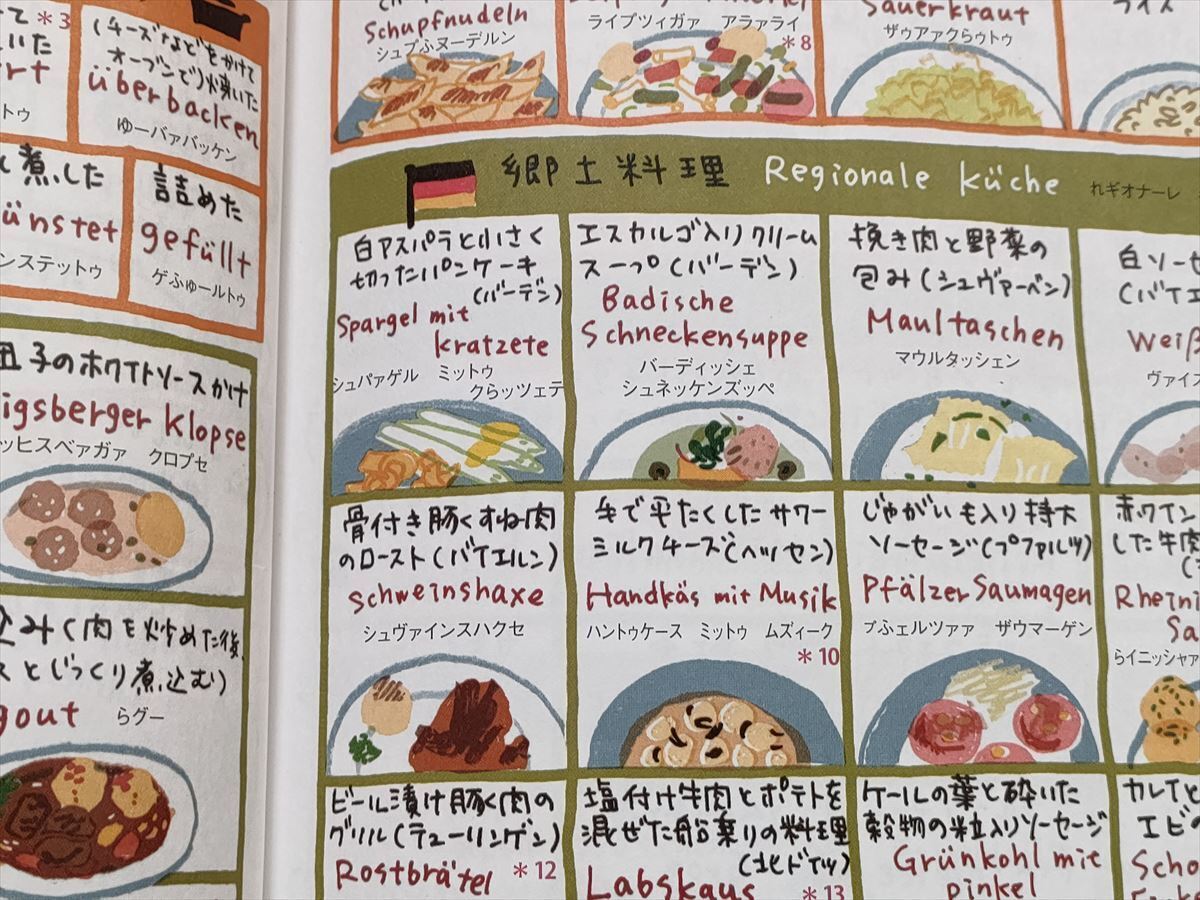 (チーズなどをかけて
オーブンで)焼いた
überbacken
ゆーバァバッケン
煮した
ünstet
ンステットゥ
詰めた
gefüllt
ゲふゅールトゥ
子のホワイトソースかけ
igsberger Klopse
ッヒスベァガァ クロプセ
みく肉を炒めた後、
スとじっくり煮込む)
gout
らグー
Schupfnudeln
シュプふヌーデルン
ライプツィガァ アラァライ
*8
Sauerkraut
ザゥアァクらゥトゥ
郷土料理 Regionale Küche れギオナーレ
白アスパラと小さく
切ったパンケーキ
(バーデン)
Spargel mit
Kratzete
シュパァゲル ミットゥ
クらッツェテ
エスカルゴ入りクリーム
スープ(バーデン)
Badische
Schneckensuppe
バーディッシェ
シュネッケンズッペ
挽き肉と野菜の
包み(シュヴァーベン)
Maultaschen
マウルタッシェン
白ソーセ
(バイエ
Weiß
ヴァイス
骨付き豚くすね肉
のロースト(バイエルン)
Schweinshaxe
シュヴァインスハクセ
手で平たくしたサワー
ミルクチーズ(ヘッセン)
Handkäs mit Musik
ハントゥケース ミットゥ ムズィーク
*10
じゃがいも入り特大
ソーセージ(プファルツ)
Pfälzer Saumagen
プふェルツァァ ザウマーゲン
赤ワイン
した牛肉
Rheini
Sa
らイニッシャァ
ビール漬け豚く肉の
グリル(テューリンゲン)
Rostbrätel
*12
塩付け牛肉とポテトを
混ぜた船乗りの料理
(北ドイツ)
Labskaus
*13
ケールの葉と砕いた
穀物の粒入りソーセージ
Grünkohl mit
pinkel
カレイと
エビ